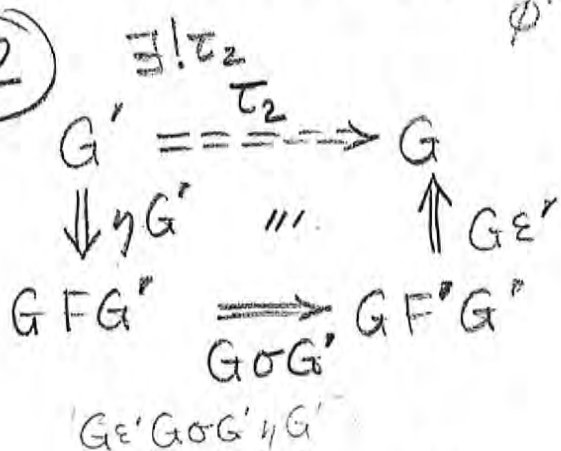 2
∃!τ₂
τ₂
G' ==⇒ G
⇓ ηG' /// ⇑ Gε'
GFG' ⇒ GF'G'
GσG'
Gε'GσG'ηG'